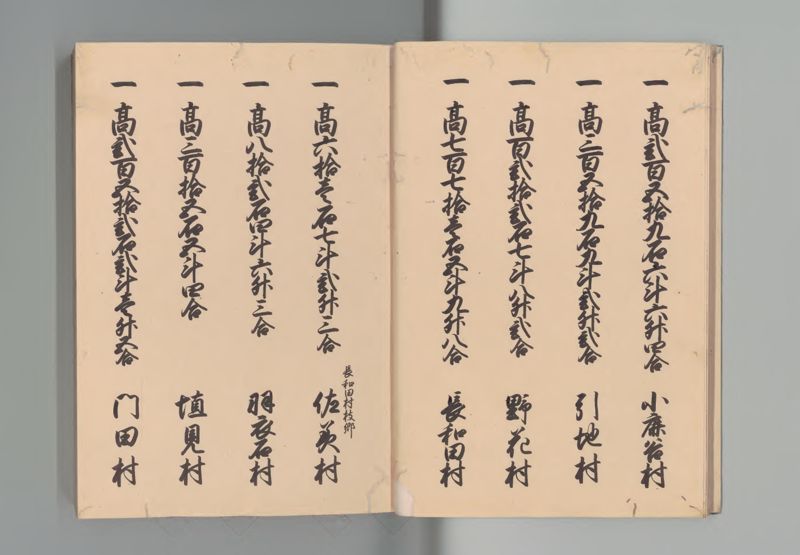 一 高弐百五拾九石六斗六升四合 小鹿谷村
一 高三百五拾九石九斗弐升弐合 引地村
一 高百弐拾弐石七斗八升弐合 野花村
一 高七百七拾壱石五斗九升八合 長和田村
長和田村枝郷
一 高六拾壱石七斗弐升三合 佐美村
一 高八拾弐石四斗六升三合 羽衣石村
一 高三百拾五石五斗四合 埴見村
一 高弐百五拾弐石弐斗壱升五合 門田村